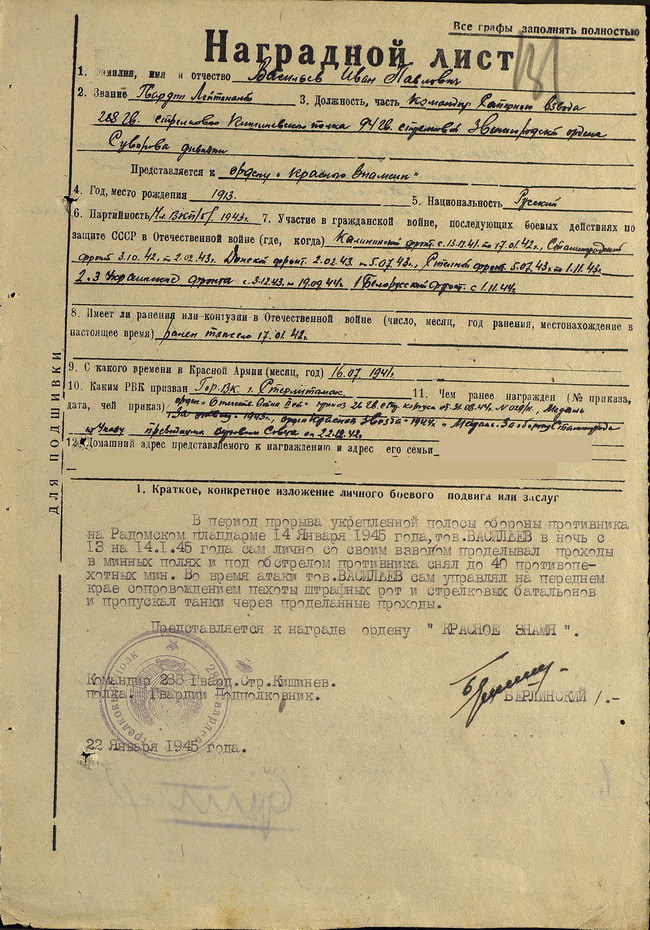 Все графы заполнять полностью
Наградной лист
1. Фамилия, имя и отчество Васильев Иван Павлович
2. Звание Гвардии Лейтенант 3. Должность, часть Командир Саперного взвода
288 гв. стрелкового Кишиневского полка 94 гв. стрелковой Звенигородской ордена
Суворова дивизии
Представляется к ордену "Красного Знамени"
4. Год, место рождения 1913. 5. Национальность Русский
6. Партийность Чл. ВКП/б/ 1943г. 7. Участие в гражданской войне, последующих боевых действиях по
защите СССР в Отечественной войне (где, когда) Калининский фронт с 13.12.41. по 17.01.42г., Сталинградский
фронт 3.10.42г. по 2.02.43. Донской фронт. 2.02.43. по 5.07.43г., Степной фронт. 5.07.43г. по 1.11.43г.
2-3 Украинского фронта с 3.12.43. по 19.09.44г. 1 Белорусский фронт. с 1.11.44г.
8. Имеет ли ранения или контузии в Отечественной войне (число, месяц, год ранения, местонахождение в
настоящее время) ранен тяжело 17.01.42г.
9. С какого времени в Красной Армии (месяц, год) 16.07.1941г.
10. Каким РВК призван Гор.ВК г. Стерлитамак 11. Чем ранее награжден (№ приказа,
дата, чей приказ) орден Отечеств. Войны приказ 26 гв. стр. корпуса Медаль
"За отвагу" 1943г., орден Красной Звезды 1944г. и Медаль. За оборону Сталинграда
по Указу президиума Верховн. Совета от 22.12.42г.
12. Домашний адрес представляемого к награждению и адрес его семьи
1. Краткое, конкретное изложение личного боевого подвига или заслуг
В период прорыва укрепленной полосы обороны противника
на Радомском плацдарме 14 Января 1945 года, тов. ВАСИЛЬЕВ в ночь с
13 на 14.1.45 года сам лично со своим взводом проделывал проходы
в минных полях и под обстрелом противника снял до 40 противопе-
хотных мин. Во время атаки тов. ВАСИЛЬЕВ сам управлял на переднем
крае сопровождением пехоты штрафных рот и стрелковых батальонов
и пропускал танки через проделанные проходы.
Представляется к награде ордену " КРАСНОЕ ЗНАМЯ ".
Командир 288 Гвард.Стр.Кишинев.
полка. Гвардии Подполковник.
/БЕРЛИНСКИЙ/.-
22 Января 1945 года.
ДЛЯ ПОДШИВКИ